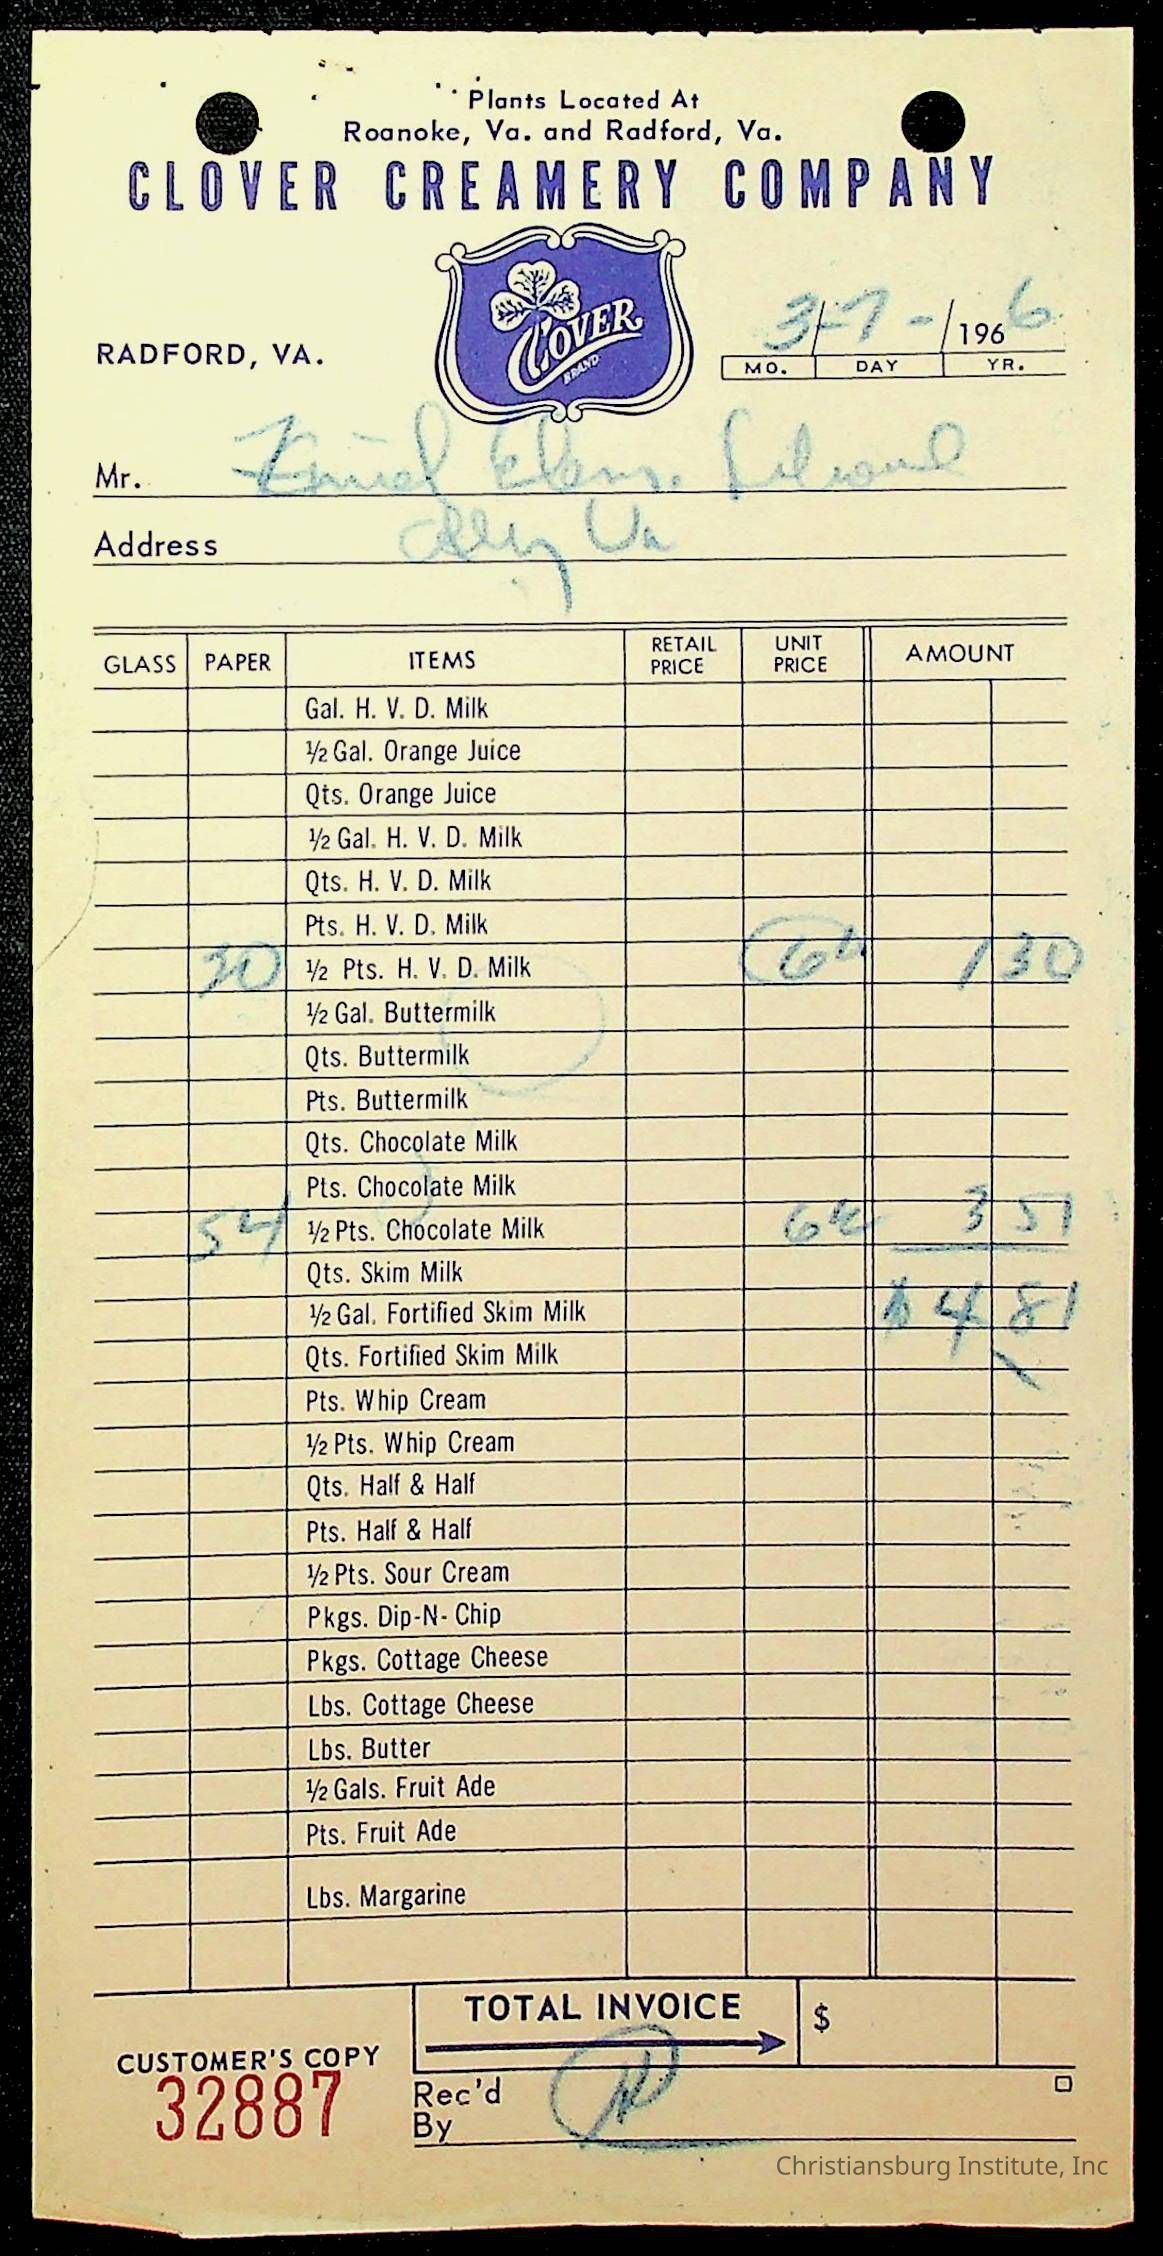 Plants Located At
Roanoke, Va. and Radford, Va.
CLOVER CREAMERY COMPANY
CLOVER
BRAND
RADFORD, VA.
3-7-/1966
MO. DAY YR.
Mr. Elem. School
Address Va
GLASS PAPER ITEMS RETAIL PRICE UNIT PRICE AMOUNT
Gal. H. V. D. Milk
½ Gal. Orange Juice
Qts. Orange Juice
½ Gal. H. V. D. Milk
Qts. H. V. D. Milk
Pts. H. V. D. Milk
½ Pts. H. V. D. Milk 1 30
½ Gal. Buttermilk
Qts. Buttermilk
Pts. Buttermilk
Qts. Chocolate Milk
Pts. Chocolate Milk
54 ½ Pts. Chocolate Milk 6½ 3 51
Qts. Skim Milk
½ Gal. Fortified Skim Milk $4 81
Qts. Fortified Skim Milk
Pts. Whip Cream
½ Pts. Whip Cream
Qts. Half & Half
Pts. Half & Half
½ Pts. Sour Cream
Pkgs. Dip-N-Chip
Pkgs. Cottage Cheese
Lbs. Cottage Cheese
Lbs. Butter
½ Gals. Fruit Ade
Pts. Fruit Ade
Lbs. Margarine
TOTAL INVOICE $
CUSTOMER'S COPY
32887
Rec'd
By
Christiansburg Institute, Inc